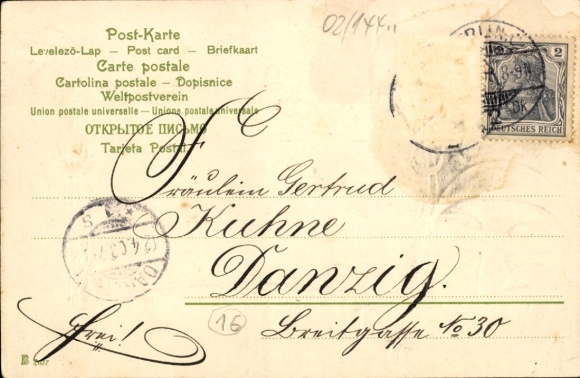 02/144
Post-Karte
Levelezö-Lap — Post card — Briefkaart
Carte postale
Cartolina postale — Dopisnice
Weltpostverein
Union postale universelle — Unione postale universale
ОТКРЫТОЕ ПИСЬМО
Tarjeta Postal
2
DEUTSCHES REICH
Fräulein Gertrud
Kuhne
Danzig.
Breitgasse No 30
frei!
16